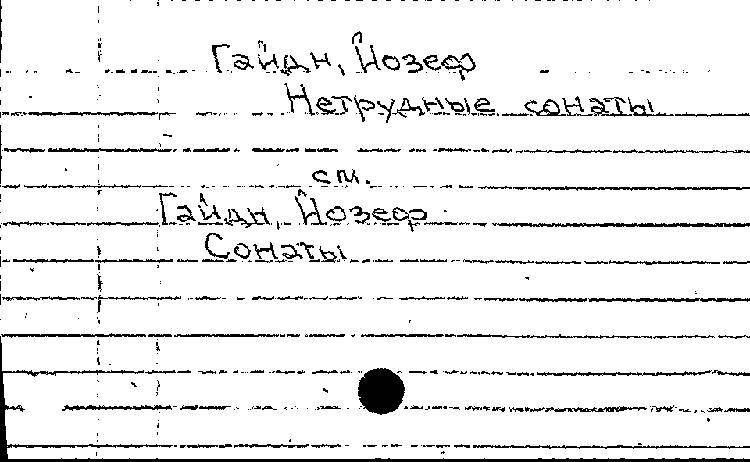 Гайдн, Йозеф
Нетрудные сонаты
см.
Гайдн, Йозеф
Сонаты